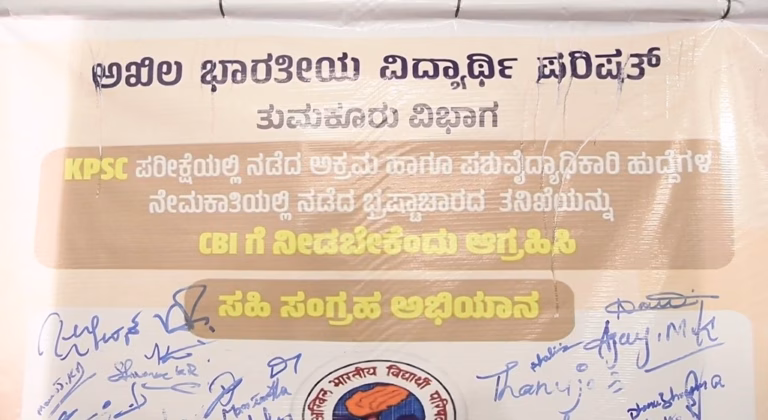 ಅಖಿಲ ಭಾರತೀಯ ವಿದ್ಯಾರ್ಥಿ ಪರಿಷತ್
ತುಮಕೂರು ವಿಭಾಗ
KPSC ಪರೀಕ್ಷೆಯಲ್ಲಿ ನಡೆದ ಅಕ್ರಮ ಹಾಗೂ ಪಶುವೈದ್ಯಾಧಿಕಾರಿ ಹುದ್ದೆಗಳ
ನೇಮಕಾತಿಯಲ್ಲಿ ನಡೆದ ಭ್ರಷ್ಟಾಚಾರದ ತನಿಖೆಯನ್ನು
CBI ಗೆ ನೀಡಬೇಕೆಂದು ಆಗ್ರಹಿಸಿ
ಸಹಿ ಸಂಗ್ರಹ ಅಭಿಯಾನ
Ajay.M.K
Thanuja
अखिल भारतीय विद्यार्थी परिषद